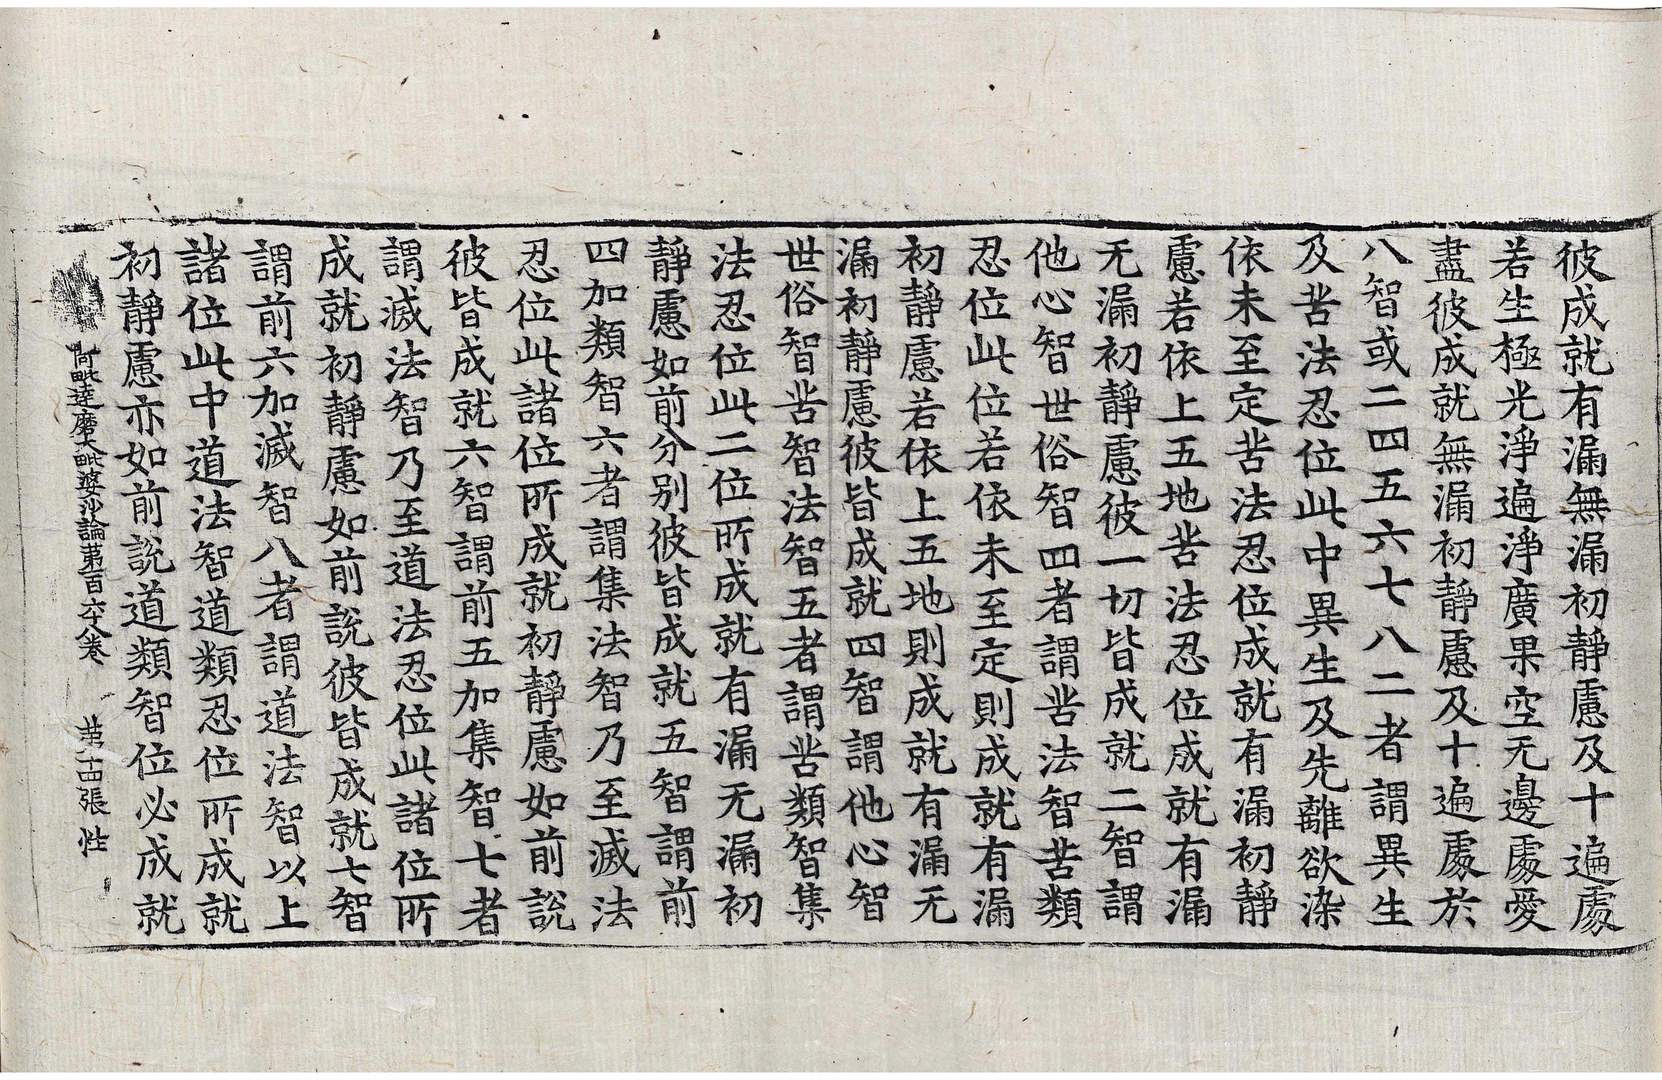 彼成就有漏無漏初静慮及十遍處
若生極光淨遍淨廣果空无邊處愛
盡彼成就無漏初静慮及十遍處於
八智或二四五六七八二者謂異生
及苦法忍位此中異生及先離欲染
依未至定苦法忍位成就有漏初静
慮若依上五地苦法忍位成就有漏
无漏初静慮彼一切皆成就二智謂
他心智世俗智四者謂苦法智苦類
忍位此位若依未至定則成就有漏
初静慮若依上五地則成就有漏无
漏初静慮彼皆成就四智謂他心智
世俗智苦智法智五者謂苦類智集
法忍位此二位所成就有漏无漏初
静慮如前分別彼皆成就五智謂前
四加類智六者謂集法智乃至滅法
忍位此諸位所成就初静慮如前說
彼皆成就六智謂前五加集智七者
謂滅法智乃至道法忍位此諸位所
成就初静慮如前說彼皆成就七智
謂前六加滅智八者謂道法智以上
諸位此中道法智道類忍位所成就
初静慮亦如前說道類智位必成就
阿毗達磨大毗婆沙論第百六十八卷 第二十四張 性